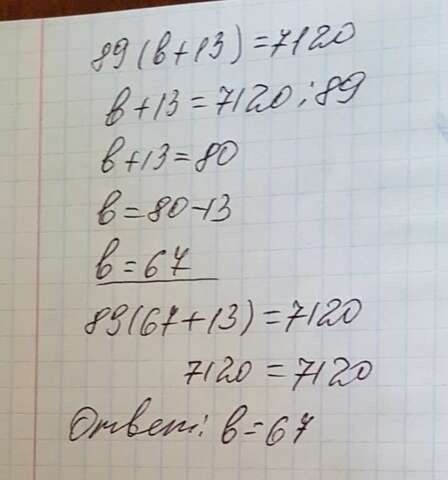 89(в+13)=7120
в+13=7120:89
в+13=80
в=80-13
в=67
89(67+13)=7120
7120=7120
Ответ: в=67